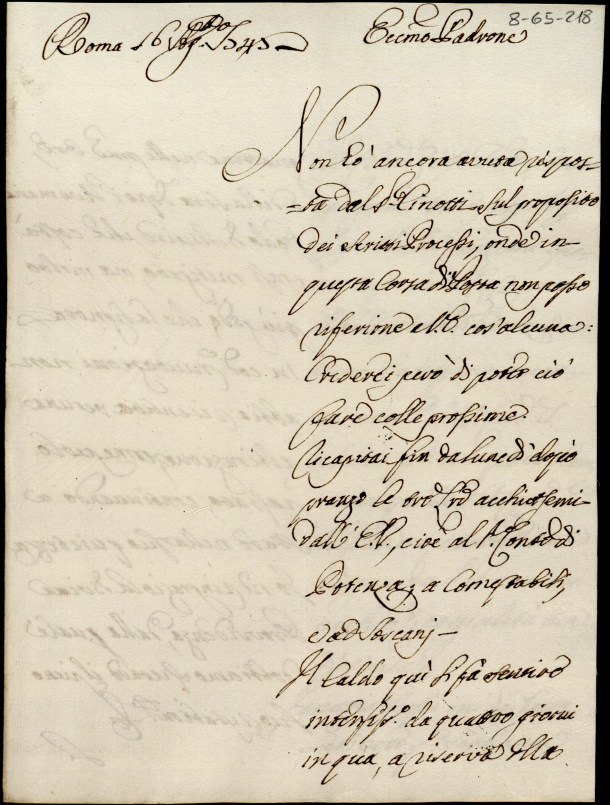 8-65-218
Roma 16 745
Eccmo Padrone
Non hò ancora avuta rispos=
=ta dal Sr. Linotti sul proposito
dei scritti Processi, onde in
questa Corsa di Posta non posso
riferirne a V. E. cos' alcuna:
Crederei però di poter ciò
fare colle prossime.
Ricapitai fin da lunedì dopo
pranzo le tre acchiusemi
dall' E. V., cioè al Sr. Conte di
Potenza, a Comestabili,
ed a Toscani —
Il Caldo quì si fà sentire
intensisso. da quattro giorni
in quà, a riserva della